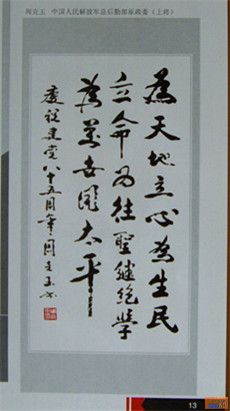 周克玉 中国人民解放军总后勤部原政委（上将）
為天地立心為生民
立命為往聖継絶學
為萬世開太平
慶祝建党八十五周年周克玉书
13